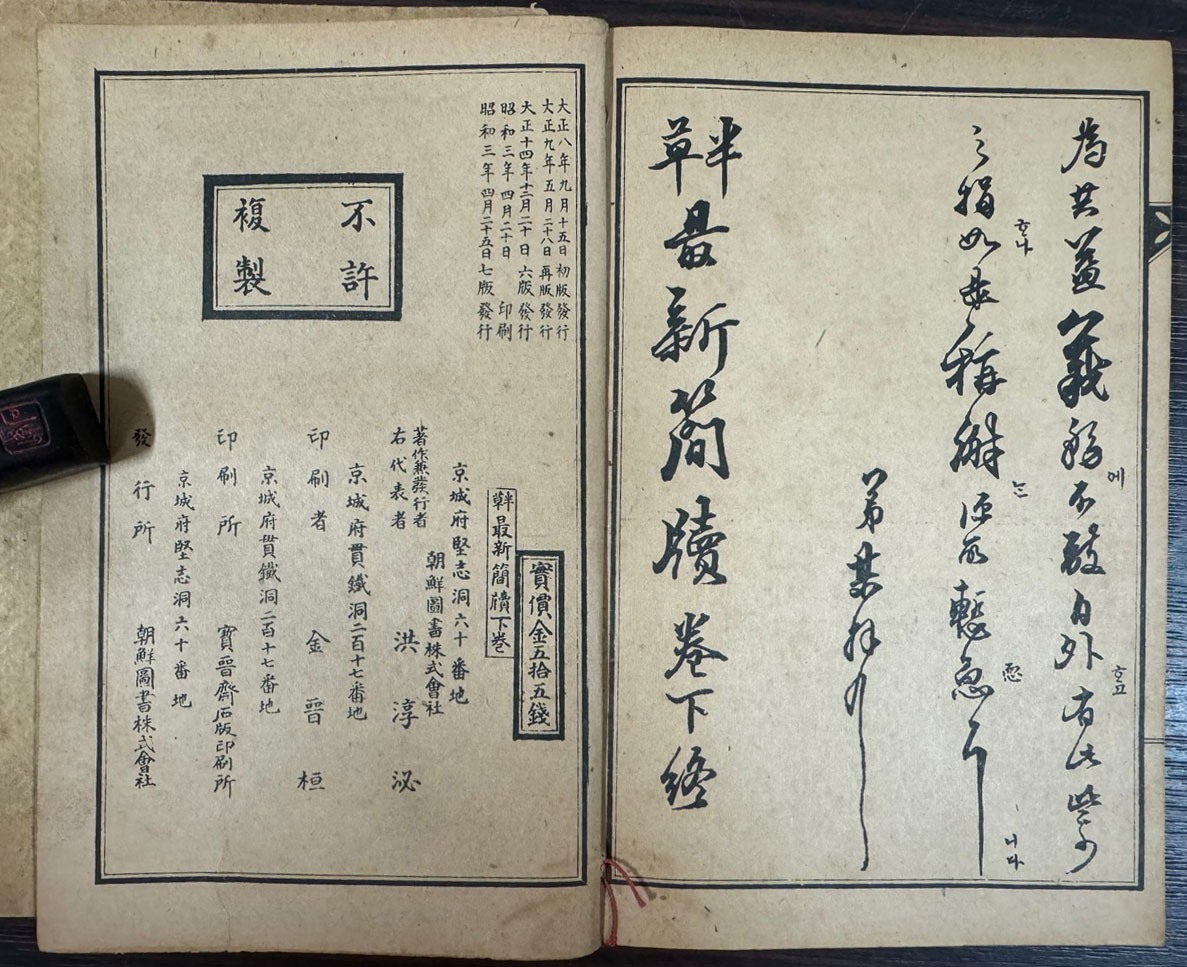 為共益義務에不敢自外하고有此些少
之捐하나如是稱는
니다
弟某拜
半草最新簡牘卷下終
大正八年九月十五日初版發行
大正九年五月二十八日再版發行
大正十四年十二月二十日六版發行
昭和三年四月二十日印刷
昭和三年四月二十五日七版發行
不許
複製
實價金五拾五錢
半草最新簡牘下卷
京城府堅志洞六十番地
朝鮮圖書株式會社
著作兼發行者
右代表者 洪淳泌
京城府貫鐵洞二百十七番地
印刷者 金晉桓
京城府貫鐵洞二百十七番地
印刷所 寶晉齋石版印刷所
京城府堅志洞六十番地
發行所 朝鮮圖書株式會社